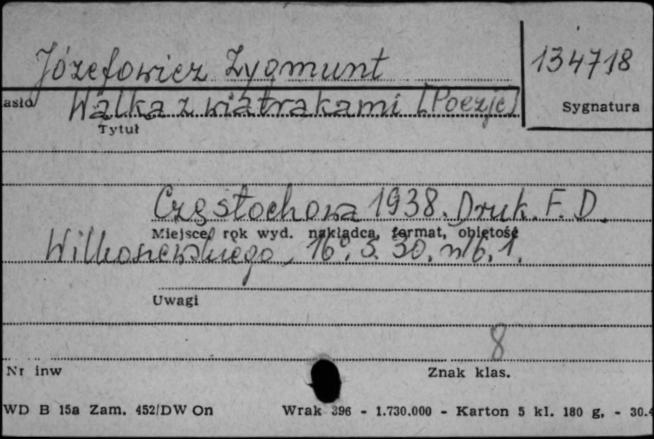 Józefowicz Zygmunt
134718
asło Walka z wiatrakami [Poezje]
Sygnatura
Tytuł
Częstochowa 1938. Druk. F. D.
Miejsce, rok wyd. nakładca, format, objętość
Wilkoszewskiego, 16°, s. 30, nlb. 1.
Uwagi
8
Nr inw
Znak klas.
WD B 15a Zam. 452/DW On Wrak 396 - 1.730.000 - Karton 5 kl. 180 g. - 30.4